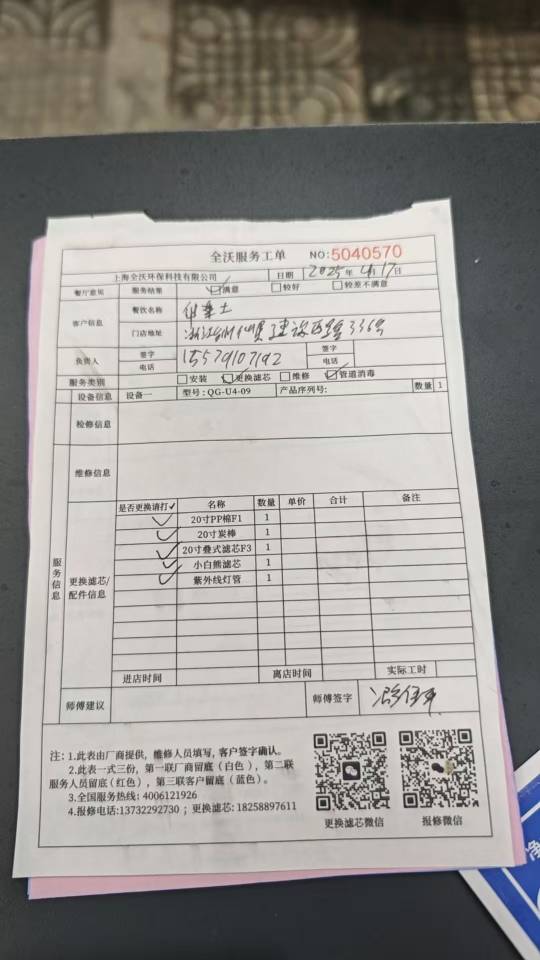 全沃服务工单 NO:5040570
上海全沃环保科技有限公司 日期 2025年4月17日
餐厅意见 服务结果 ☑满意 □较好 □较差不满意
客户信息 餐饮名称
门店地址 336号
负责人 签字 电话 15579107192 签字 电话
服务类别 □安装 ☑更换滤芯 □维修 ☑管道消毒
设备信息 设备一 型号:QG-U4-09 产品序列号: 数量 1
检修信息
维修信息
服务信息
更换滤芯/配件信息
是否更换请打✓ 名称 数量 单价 合计 备注
✓ 20寸PP棉F1 1
✓ 20寸炭棒 1
✓ 20寸叠式滤芯F3 1
✓ 小白熊滤芯 1
✓ 紫外线灯管 1
进店时间 离店时间 实际工时
师傅建议 师傅签字
注: 1.此表由厂商提供, 维修人员填写, 客户签字确认。
2.此表一式三份, 第一联厂商留底 (白色), 第二联
服务人员留底(红色), 第三联客户留底 (蓝色)。
3.全国服务热线: 4006121926
4.报修电话:13732292730 ; 更换滤芯: 18258897611
更换滤芯微信 报修微信
净